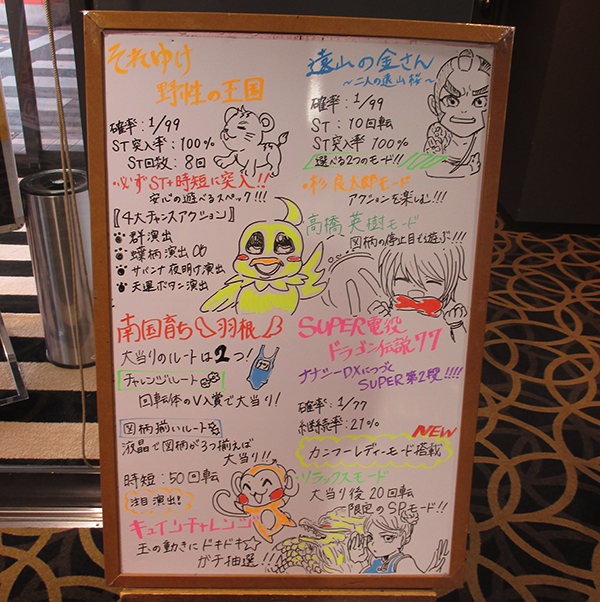 それゆけ
野性の王国
確率:1/99
ST突入率:100%
ST回数:8回
必ずST+時短に突入!!
安心の遊べるスペック!!!
『4大チャンスアクション』
群演出
蝶柄演出
サバンナ夜明け演出
天運ボタン演出
遠山の金さん
~二人の遠山桜~
確率:1/99
ST:10回転
ST突入率 100%
選べる2つのモード!!
杉良太郎モード
アクションを楽しむ!!!
高橋英樹モード
図柄の停止目で遊ぶ!!!
南国育ち 羽根
大当りのルートは2つ!
チャレンジルート
回転体のV入賞で大当り!
図柄揃いルート
液晶で図柄が3つ揃えば
大当り!!
時短:50回転
注目演出!
キュインチャレンジ
玉の動きにドキドキ☆
ガチ抽選!!
SUPER電役
ドラゴン伝説77
ナナシーDXにつづく
SUPER第2段!!!!
確率:1/77
継続率:21%
NEW
カンフーレディーモード搭載
リラックスモード
大当り後20回転
限定のSPモード!!